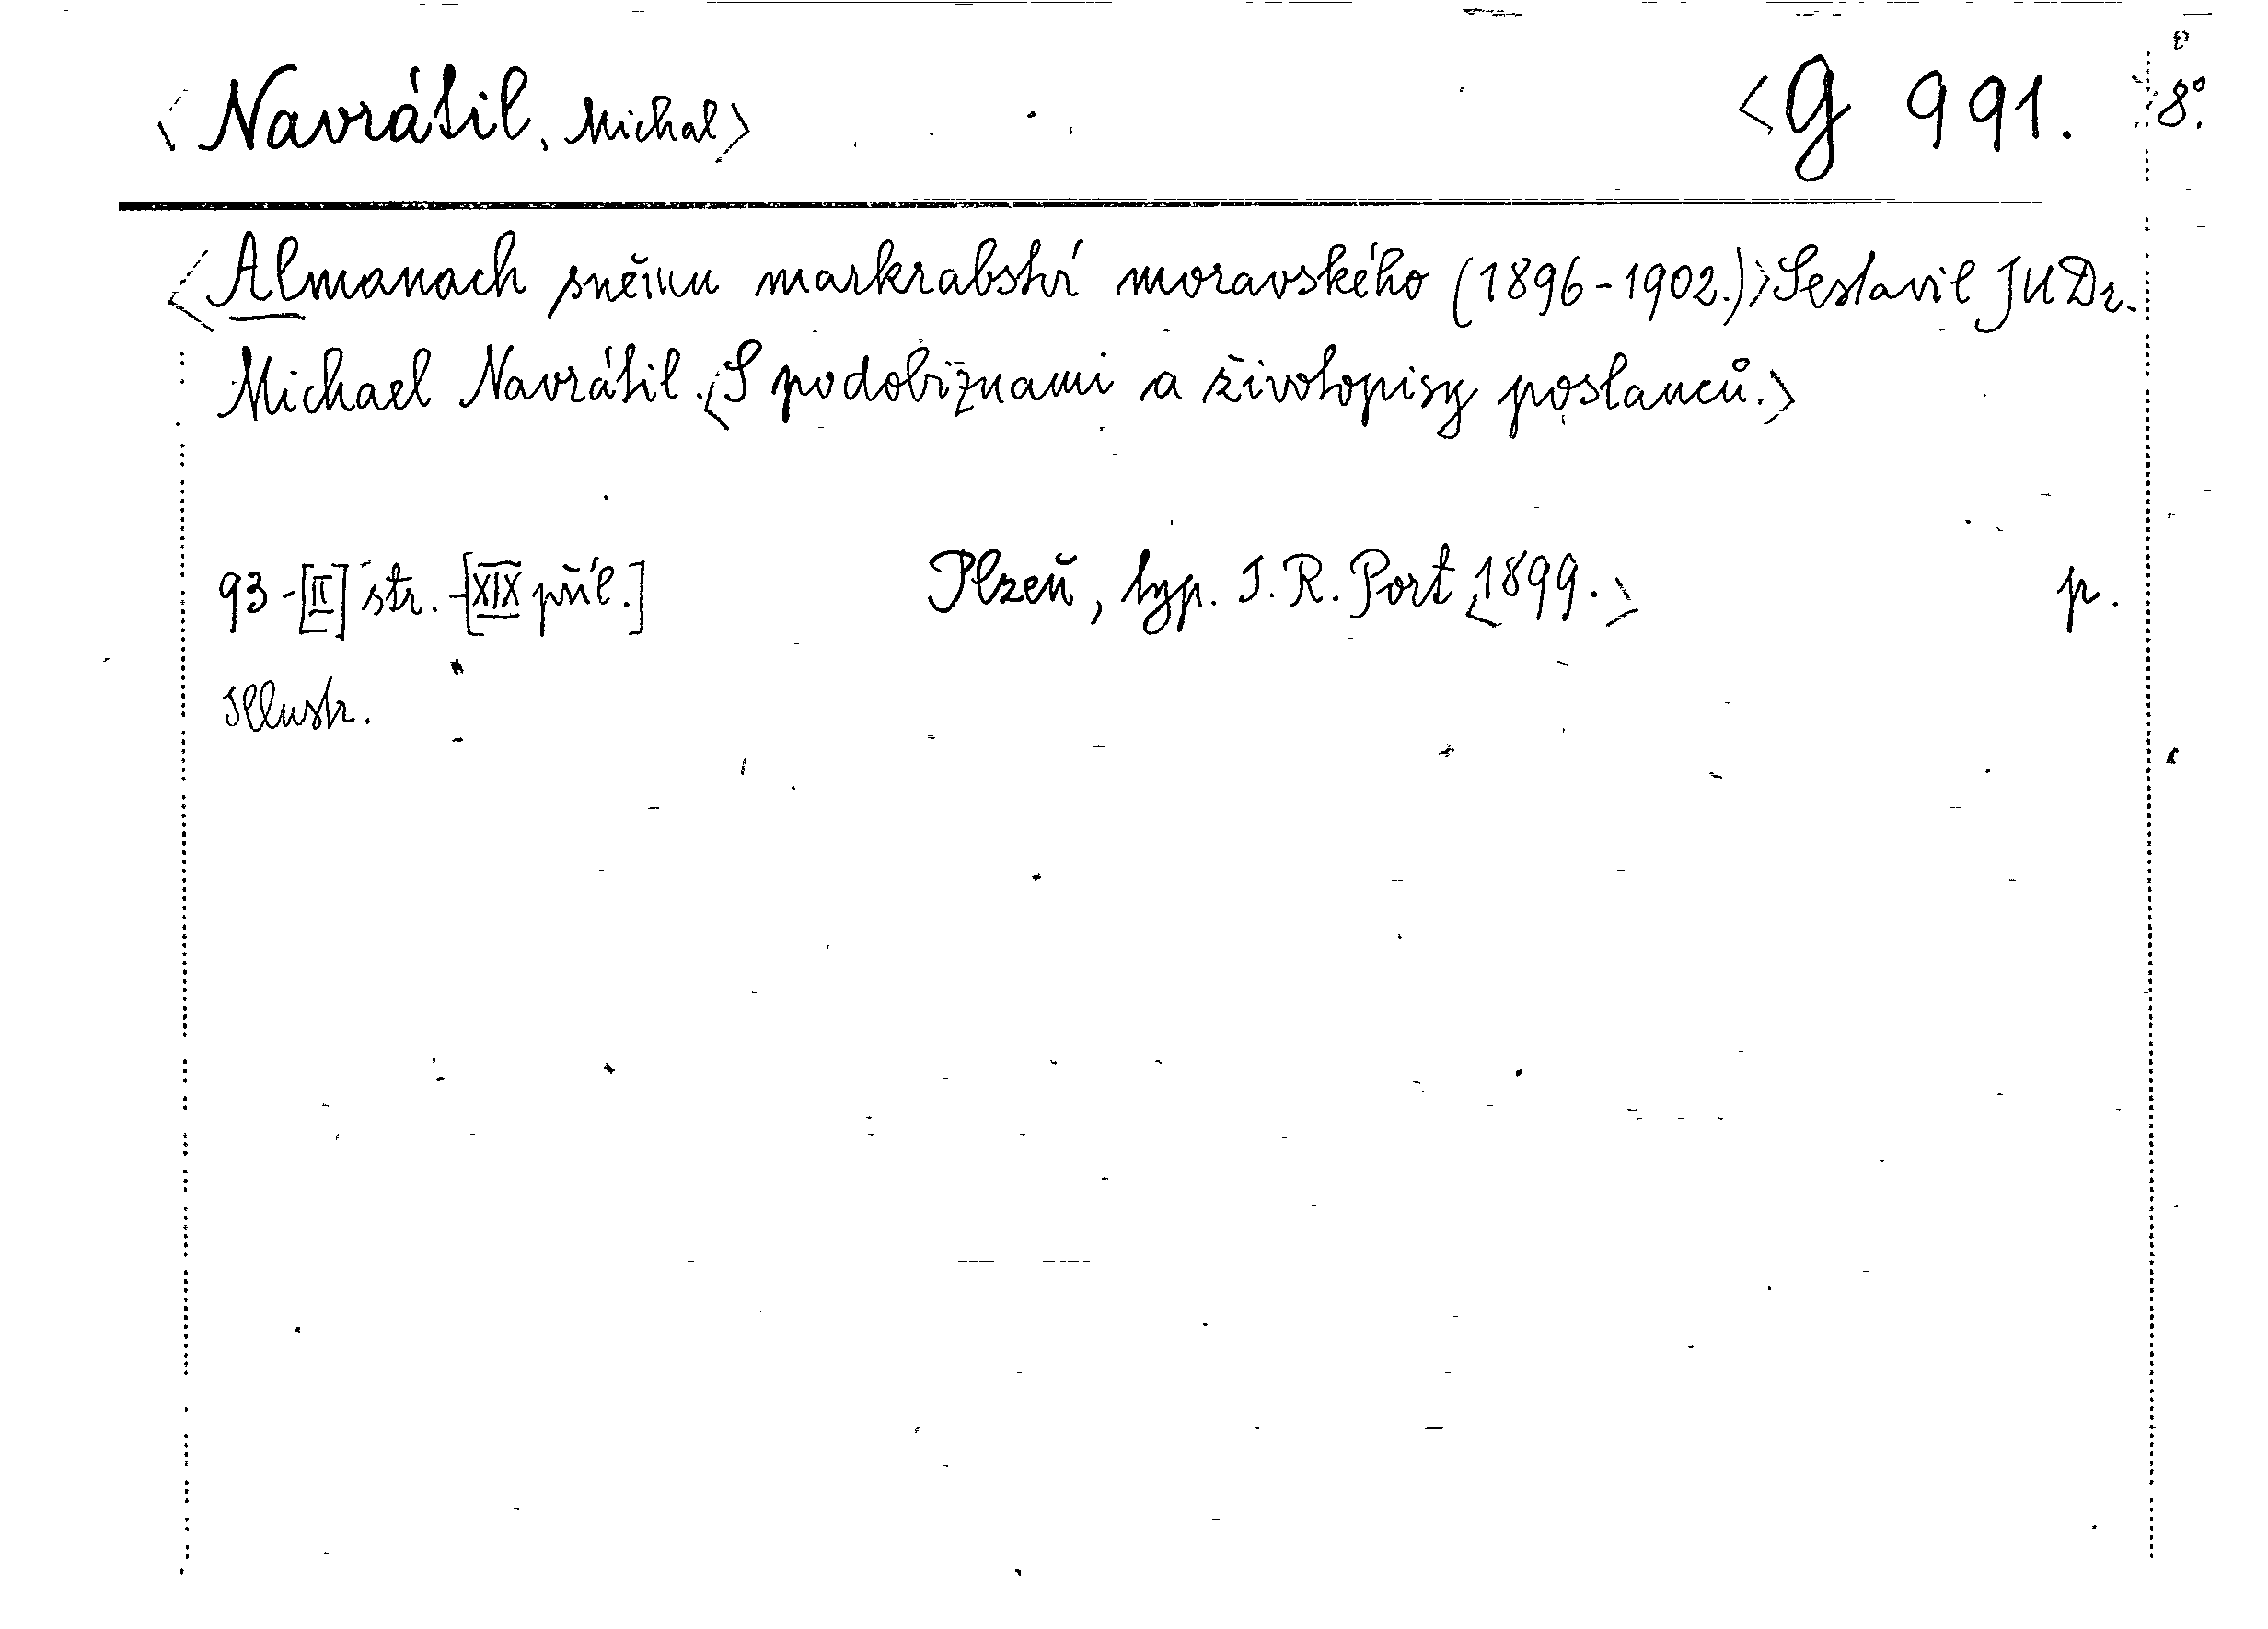 <Navrátil, Michal> <G 991. 8°.
<Almanach sněmu markrabství moravského (1896-1902.)> Sestavil JUDr.
Michael Navrátil. <S podobiznami a životopisy poslanců.>
93-[II] str. -[XIX příl.] Plzeň, typ. J. R. Port <1899.> p.
Illustr.